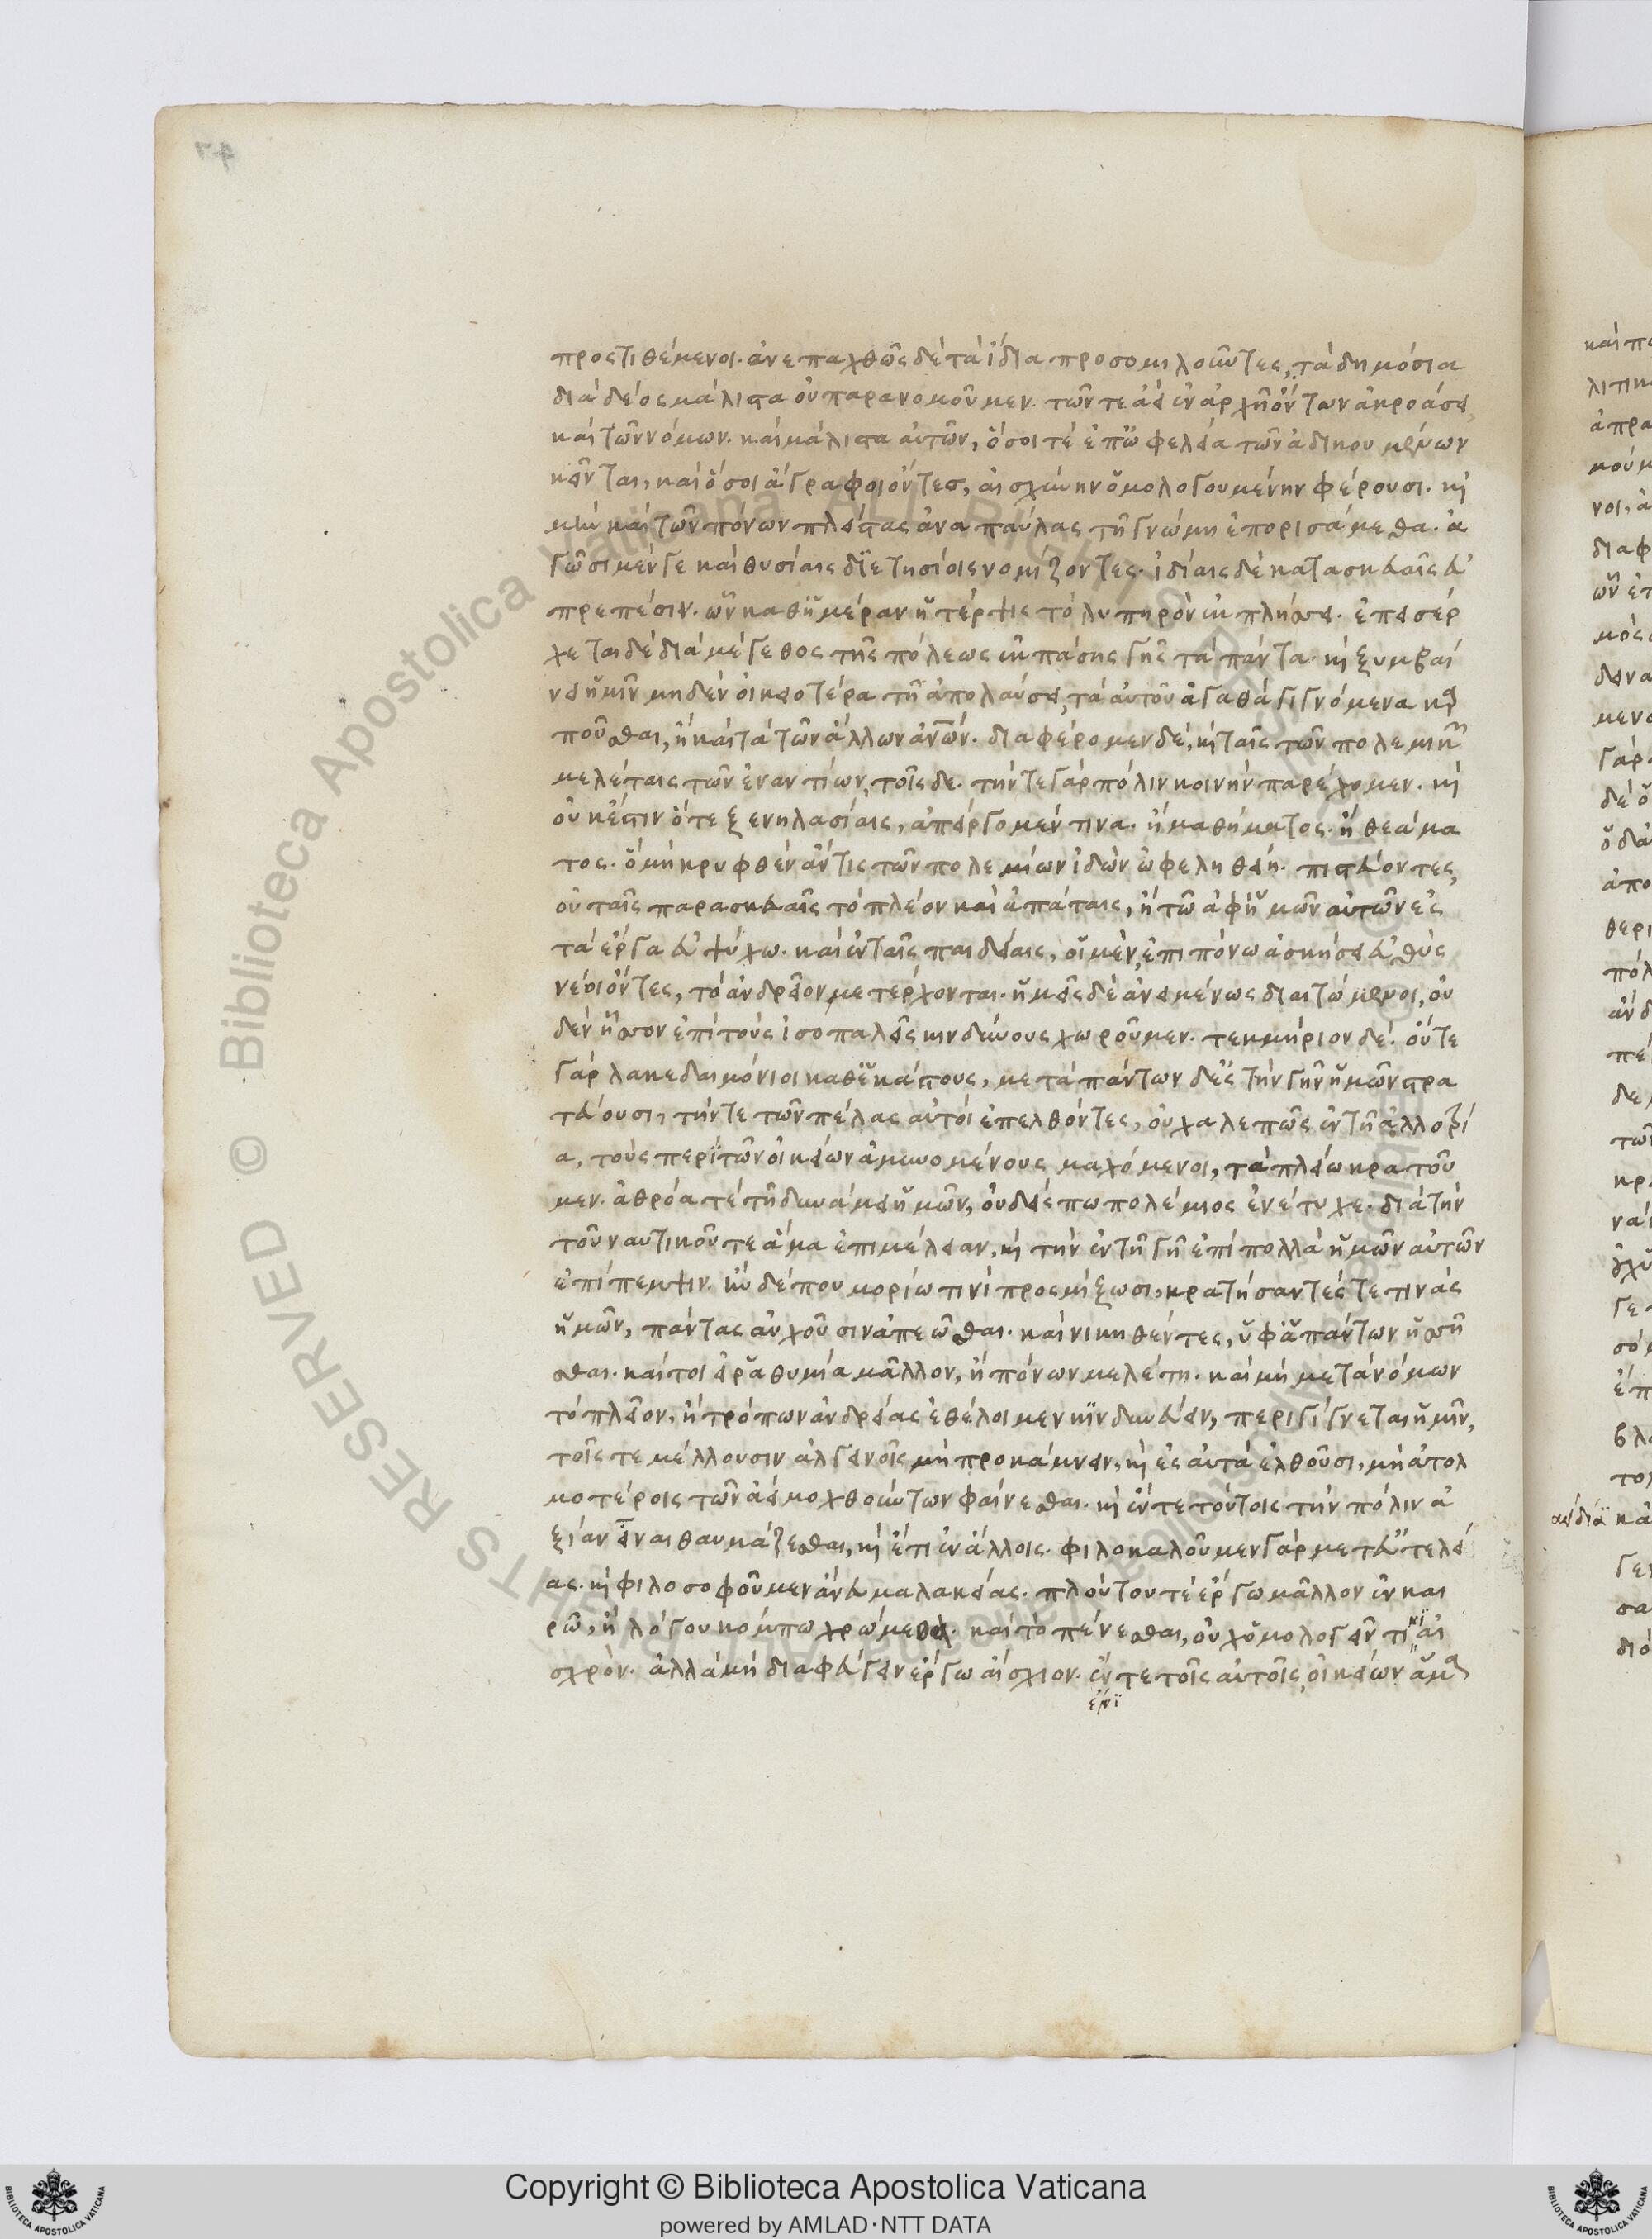 προςτιθέμενοι. ἀνεπαχθῶς δὲ τὰ ἴδια προσομιλοῦντες, τὰ δημόσια
διὰ δέος μάλιστα οὐ παρανομοῦμεν. τῶν τε ἀεὶ ἐν ἀρχῇ ὄντων ἀκροάσει,
καὶ τῶν νόμων. καὶ μάλιστα αὐτῶν, ὅσοι τὲ ἐπ' ὠφελεία τῶν ἀδικουμένων
κεῖνται, καὶ ὅσοι ἄγραφοι ὄντες, αἰσχύνην ὁμολογουμένην φέρουσι. καὶ
μὴν καὶ τῶν πόνων πλείστας ἀναπαύλας τῇ γνώμη ἐπορισάμεθα. ἀ
γῶσι μέν γε καὶ θυσίαις διετησίοις νομίζοντες. ἰδίαις δὲ κατασκευαῖς εὐ
πρεπέσιν. ὧν καθ' ἡμέραν ἡ τέρψις τὸ λυπηρὸν ἐκπλήσσει. ἐπεισέρ
χεται δὲ διὰ μέγεθος τῆς πόλεως ἐκ πάσης γῆς τὰ πάντα. καὶ ξυμβαί
νει ἡμῖν μηδὲν οἰκειοτέρα τῇ ἀπολαύσει, τὰ αὐτοῦ ἀγαθὰ γιγνόμενα καρ
ποῦσθαι, ἢ καὶ τὰ τῶν ἄλλων ἀνων. διαφέρομεν δέ, καὶ ταῖς τῶν πολεμικῶν
μελέταις τῶν ἐναντίων, τοῖςδε. τήν τε γὰρ πόλιν κοινὴν παρέχομεν. καὶ
οὐκ ἔστιν ὅτε ξενηλασίαις, ἀπείργομέν τινα. ἢ μαθήματος. ἢ θεάμα
τος. ὃ μὴ κρυφθὲν ἄν τις τῶν πολεμίων ἰδὼν ὠφεληθείη. πιστεύοντες,
οὐ ταῖς παρασκευαῖς τὸ πλέον καὶ ἀπάταις, ἢ τῶ ἀφ' ἡμῶν αὐτῶν ἐς
τὰ ἔργα εὐψύχω. καὶ ἐν ταῖς παιδείαις, οἱ μὲν, ἐπιπόνω ἀσκήσει εὐθὺς
νέοι ὄντες, τὸ ἀνδρεῖον μετέρχονται. ἡμεῖς δὲ ἀνειμένως διαιτώμενοι, οὐ
δὲν ἧσσον ἐπὶ τοὺς ἰσοπαλεῖς κινδύνους χωροῦμεν. τεκμήριον δέ. οὔτε
γὰρ λακεδαιμόνιοι καθ' ἑκάστους, μετὰ πάντων δ' ἐς τὴν γῆν ἡμῶν στρα
τεύουσι, τήν τε τῶν πέλας αὐτοὶ ἐπελθόντες, οὐ χαλεπῶς ἐν τῇ ἀλλοτρί
α, τοὺς περὶ τῶν οἰκείων ἀμυνομένους μαχόμενοι, τὰ πλείω κρατοῦ
μεν. ἀθρόα τὲ τῇ δυνάμει ἡμῶν, οὐδείς πω πολέμιος ἐνέτυχε. διὰ τὴν
τοῦ ναυτικοῦ τε ἅμα ἐπιμέλειαν, καὶ τὴν ἐν τῇ γῇ ἐπὶ πολλὰ ἡμῶν αὐτῶν
ἐπίπεμψιν. ἢν δέ που μορίω τινὶ προςμίξωσι, κρατήσαντές τε τινὰς
ἡμῶν, πάντας αὐχοῦσιν ἀπεῶσθαι. καὶ νικηθέντες, ὑφ' ἁπάντων ἡσσῆ
σθαι. καίτοι εἰ ῥαθυμία μᾶλλον, ἢ πόνων μελέτη. καὶ μὴ μετὰ νόμων
τὸ πλεῖον, ἢ τρόπων ἀνδρείας ἐθέλοιμεν κινδυνεύειν, περιγίγνεται ἡμῖν,
τοῖς τε μέλλουσιν ἀλγεινοῖς μὴ προκάμνειν, καὶ ἐς αὐτὰ ἐλθοῦσι, μὴ ἀτολ
μοτέροις τῶν ἀεὶ μοχθούντων φαίνεσθαι. καὶ ἔν τε τούτοις τὴν πόλιν ἀ
ξίαν εἶναι θαυμάζεσθαι, καὶ ἔτι ἐν ἄλλοις. φιλοκαλοῦμεν γὰρ μετ' εὐτελεί
ας. καὶ φιλοσοφοῦμεν ἄνευ μαλακίας. πλούτου τὲ ἔργω μᾶλλον ἐν και
ρῶ, ἢ λόγου κόμπω χρώμεθα. καὶ τὸ πένεσθαι, οὐχ ὁμολογεῖν τινὶ αἰ
σχρὸν. ἀλλὰ μὴ διαφεύγειν ἔργω αἴσχιον. ἔν τε τοῖς αὐτοῖς, οἰκείων ἅμα